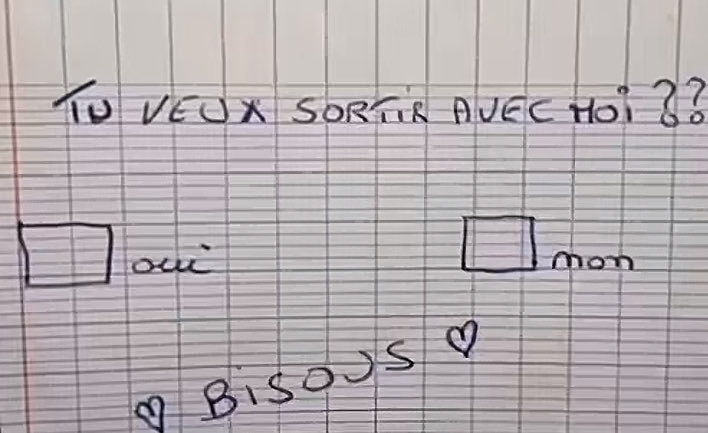 TU VEUX SORTIR AVEC MOi ??
oui non
♡ BiSOUS ♡